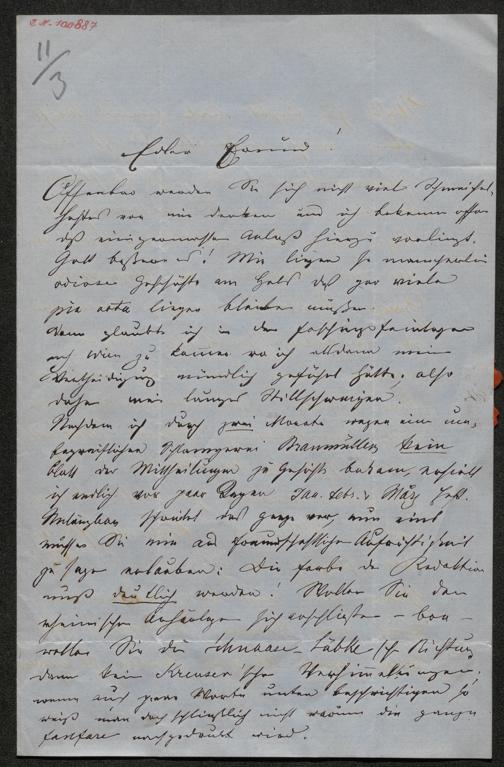 E.N. 100887
11/3
Edler Freund!
Offenbar werden Sie sich nicht viel Schmeichel-
haftes von mir denken und ich bekenne offen
daß einigermassen Anlaß hierzu vorliegt.
Gott beßere es! Mir liegen so mancherlei
odiose Geschäfte am Hals daß gar viele
pia vota liegen bleiben müßen.
Dann glaubte ich in den Faschingsfeiertagen
nach Wien zu kommen wo ich alsdann meine
Vertheidigung mündlich geführt hätte, also
daher mein langes Stillschweigen.
Nachdem ich durch zwei Monate wegen einer un-
begreiflichen Schlamperei Braumüllers kein
Blatt der Mittheilungen zu Gesicht bekam, erhielt
ich endlich vor paar Tagen Jan. Febr. & März Heft.
schreitet das ganze vor, nur eins
müssen Sie mir aus freundschaftlicher Aufrichtigkeit
zu sagen erlauben: Die Farbe der Redaktion
muß deutlich werden! Wollen Sie den
rheinischen Archäologen sich anschließen – bon –
wollen Sie die Schnaase-Lübke'sche Richtung
dann kein Kreuser'sche Verhimmelungen,
wenn auch paar Worte unten beschwichtigen so
weiß man doch schließlich nicht warum die ganze
Fanfare nachgedruckt wird.